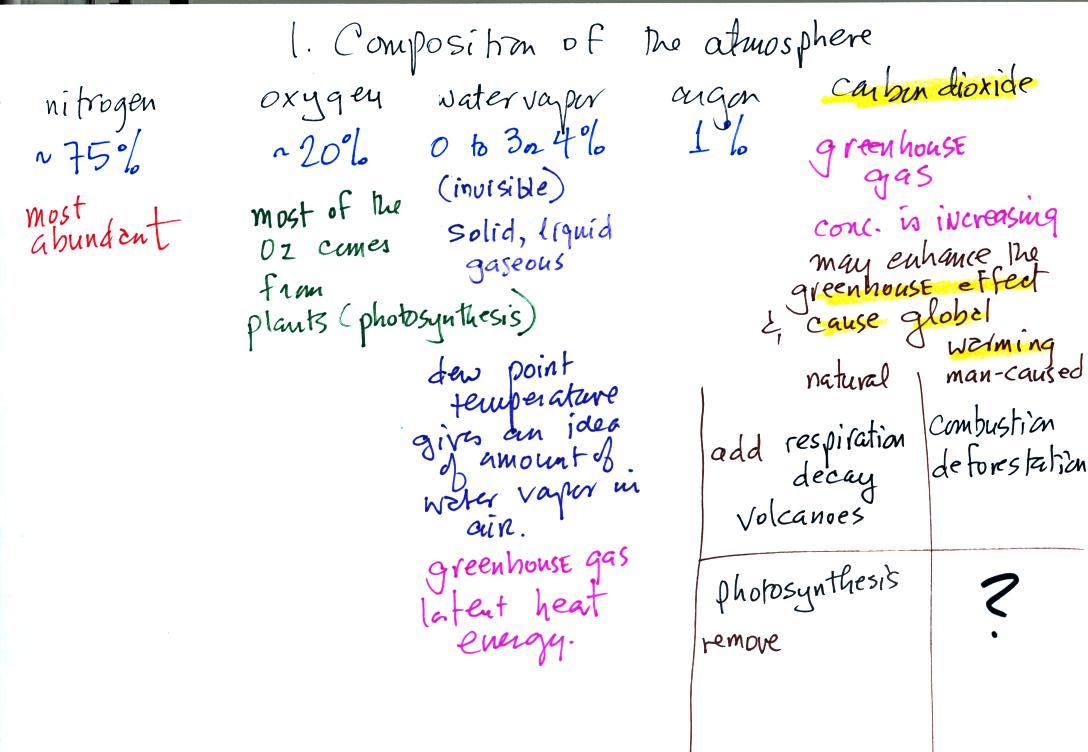 1. Composition of the atmosphere
nitrogen
~75%
most
abundant
oxygen
~20%
most of the
O2 comes
from
plants (photosynthesis)
water vapor
0 to 3 or 4%
(invisible)
solid, liquid
gaseous
dew point
temperature
gives an idea
of amount of
water vapor in
air.
greenhouse gas
latent heat
energy.
argon
1%
carbon dioxide
greenhouse
gas
conc. is increasing
may enhance the
greenhouse effect
& cause global
warming
natural
man-caused
add respiration
decay
volcanoes
combustion
deforestation
photosynthesis
remove
?